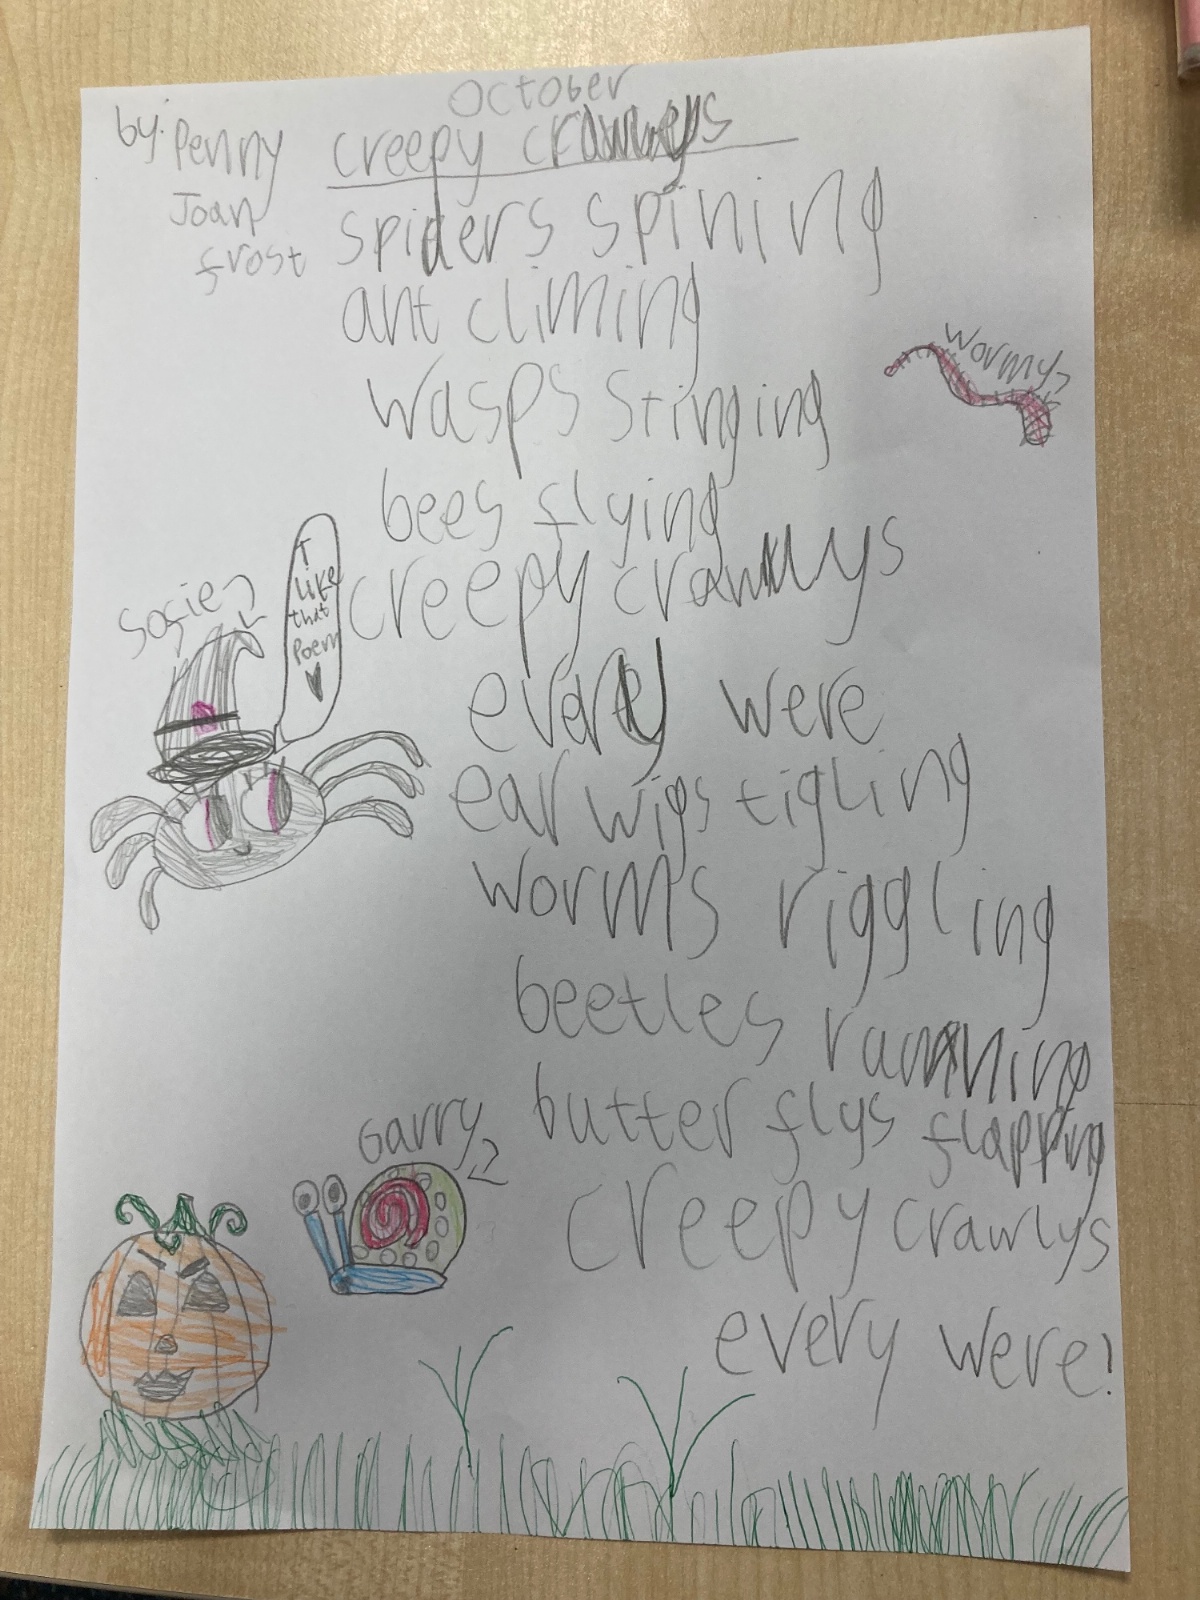 October
by: Penny
Joan
frost
creepy crawlys
spiders spining
ant climing
wasps stinging
bees flying
creepy crawlys
every were
ear wigs tigling
worms riggling
beetles running
butter flys flapping
creepy crawlys
every were!
wormy
Sofie
I
Like
that
Poem
Garry